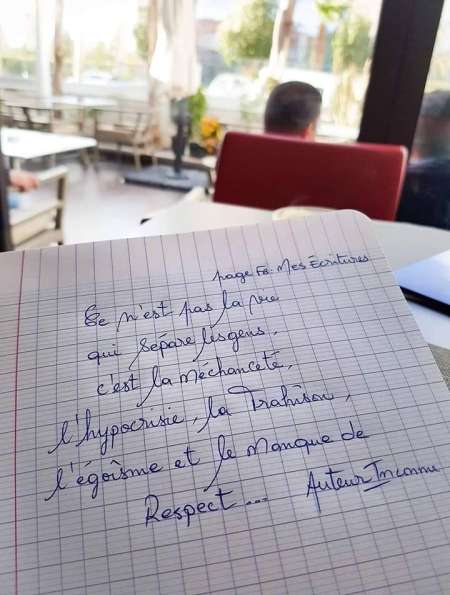 page FB: Mes Écritures
Ce n'est pas la vie
qui sépare les gens,
c'est la méchanceté,
l'hypocrisie, la Trahison,
l'égoïsme et le manque de
Respect... Auteur Inconnu